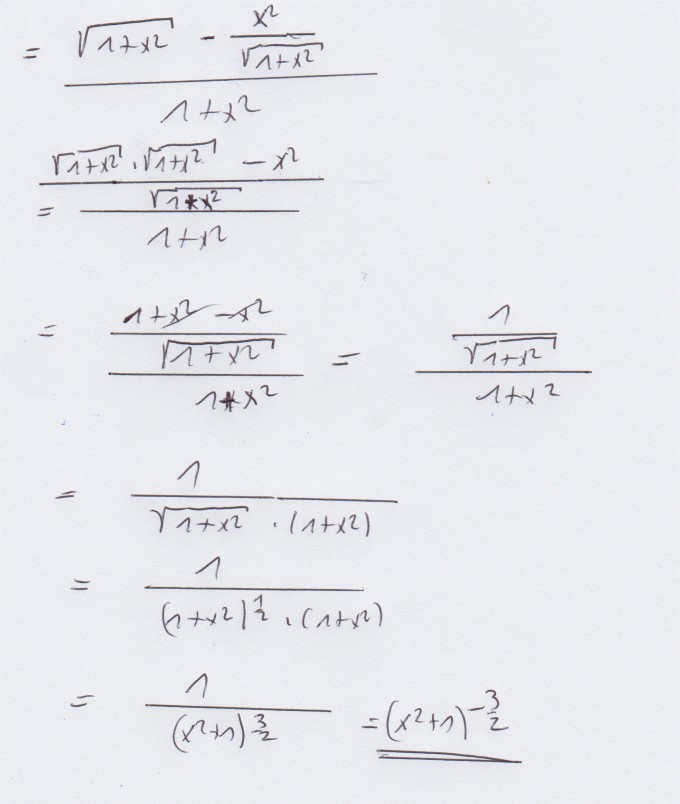 = (√(1+x²) - x²/√(1+x²))/(1+x²)
= ((√(1+x²) · √(1+x²) - x²)/√(1+x²))/(1+x²)
= ((1+x² - x²)/√(1+x²))/(1+x²) = (1/√(1+x²))/(1+x²)
= 1/(√(1+x²) · (1+x²))
= 1/((1+x²)^(1/2) · (1+x²))
= 1/(x²+1)^(3/2) = (x²+1)^(-3/2)